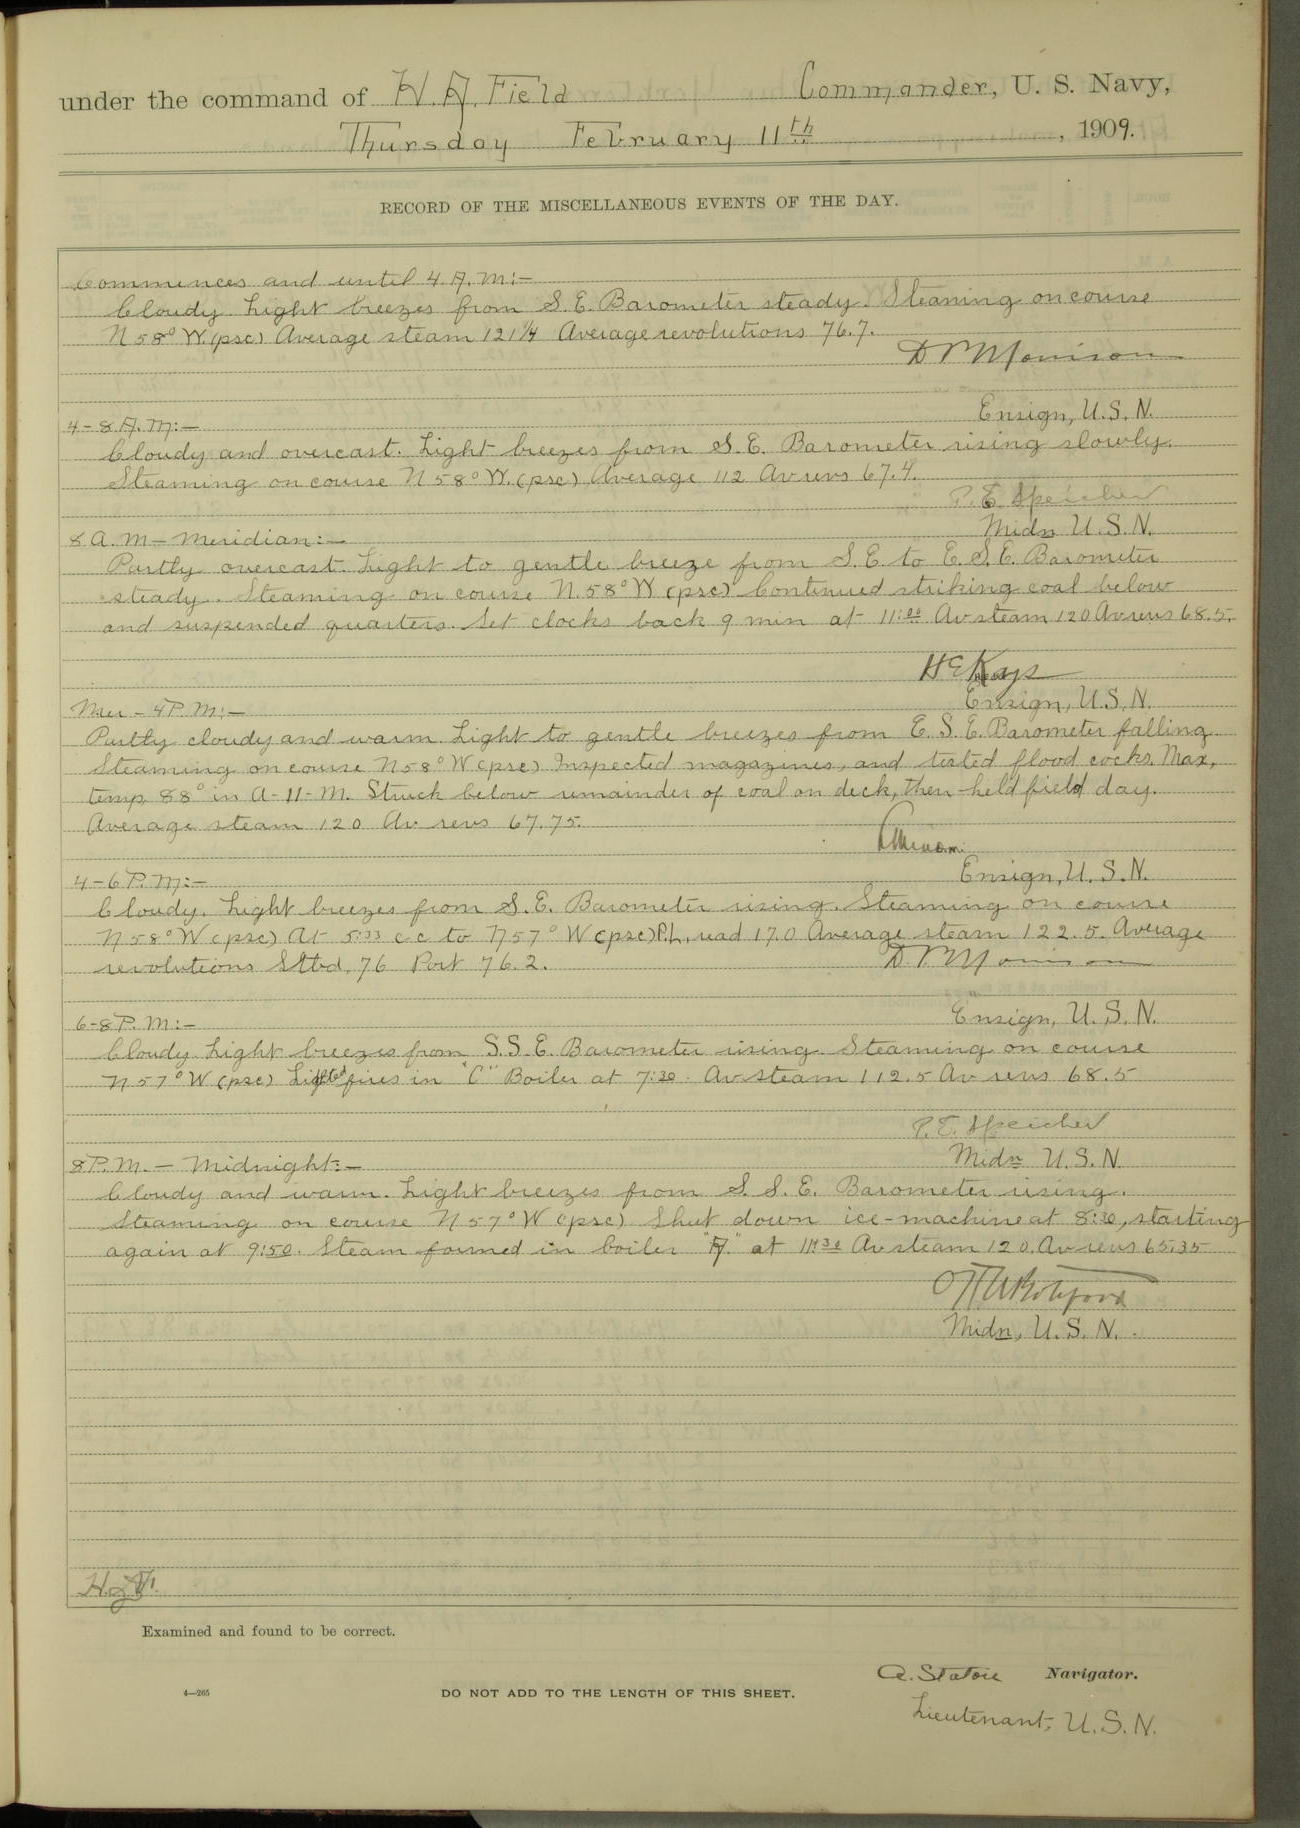 under the command of H. A. Field Commander, U. S. Navy,
Thursday February 11th, 1909.
RECORD OF THE MISCELLANEOUS EVENTS OF THE DAY.
Commences and until 4 A.M:-
Cloudy. Light breezes from S.E. Barometer steady. Steaming on course
N 58° W. (psc) Average steam 121 1/4 Average revolutions 76.7.
Ensign, U.S.N.
4-8 A.M:-
Cloudy and overcast. Light breezes from S.E. Barometer rising slowly.
Steaming on course N 58° W. (psc) Average 112 Av revs 67.4.
P. E. Speicher
Midn U.S.N.
8 A.M - Meridian:-
Partly overcast. Light to gentle breeze from S.E to E.S.E. Barometer
steady. Steaming on course N. 58° W (psc) Continued striking coal below
and suspended quarters. Set clocks back 9 min at 11:00 Av steam 120 Av revs 68.5.
H E Kays
Ensign, U.S.N.
Mer - 4 P.M:-
Partly cloudy and warm. Light to gentle breezes from E.S.E. Barometer falling.
Steaming on course N 58° W (psc) Inspected magazines, and tested flood cocks. Max,
temp. 88° in A-11-M. Struck below remainder of coal on deck, then held field day.
Average steam 120 Av revs 67.75.
Ensign, U.S.N.
4-6 P.M:-
Cloudy. Light breezes from S.E. Barometer rising. Steaming on course
N 58° W (psc) At 5:33 c c to N 57° W (psc) P.L. read 17.0 Average steam 122.5. Average
revolutions Stbd. 76 Port 76.2.
Ensign, U.S.N.
6-8 P.M:-
Cloudy. Light breezes from S.S.E. Barometer rising. Steaming on course
N 57° W (psc) Lighted fires in "C" Boiler at 7:30. Av steam 112.5 Av revs 68.5
P. E. Speicher
Midn U.S.N.
8 P.M. - Midnight:-
Cloudy and warm. Light breezes from S.S.E. Barometer rising.
Steaming on course N 57° W (psc) Shut down ice-machine at 8:30, starting
again at 9:50. Steam formed in boiler "A" at 11:30 Av steam 120. Av revs 65.35
Midn, U.S.N.
Examined and found to be correct.
A. Staton Navigator.
4-265
DO NOT ADD TO THE LENGTH OF THIS SHEET.
Lieutenant, U.S.N.